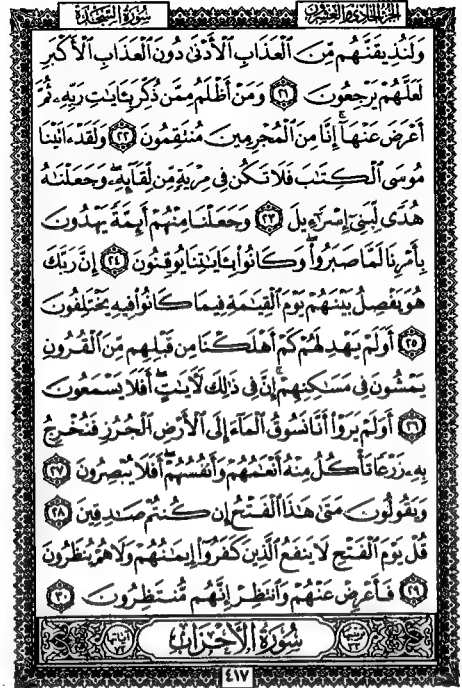 الجزء الحادي والعشرون
سورة السجدة
وَلَنُذِيقَنَّهُم مِّنَ ٱلْعَذَابِ ٱلْأَدْنَىٰ دُونَ ٱلْعَذَابِ ٱلْأَكْبَرِ
لَعَلَّهُمْ يَرْجِعُونَ ٢١ وَمَنْ أَظْلَمُ مِمَّن ذُكِّرَ بِـَٔايَـٰتِ رَبِّهِۦ ثُمَّ
أَعْرَضَ عَنْهَآ ۚ إِنَّا مِنَ ٱلْمُجْرِمِينَ مُنتَقِمُونَ ٢٢ وَلَقَدْ ءَاتَيْنَا
مُوسَى ٱلْكِتَـٰبَ فَلَا تَكُن فِى مِرْيَةٍ مِّن لِّقَآئِهِۦ ۖ وَجَعَلْنَـٰهُ
هُدًى لِّبَنِىٓ إِسْرَٰٓءِيلَ ٢٣ وَجَعَلْنَا مِنْهُمْ أَئِمَّةً يَهْدُونَ
بِأَمْرِنَا لَمَّا صَبَرُوا۟ ۖ وَكَانُوا۟ بِـَٔايَـٰتِنَا يُوقِنُونَ ٢٤ إِنَّ رَبَّكَ
هُوَ يَفْصِلُ بَيْنَهُمْ يَوْمَ ٱلْقِيَـٰمَةِ فِيمَا كَانُوا۟ فِيهِ يَخْتَلِفُونَ
٢٥ أَوَلَمْ يَهْدِ لَهُمْ كَمْ أَهْلَكْنَا مِن قَبْلِهِم مِّنَ ٱلْقُرُونِ
يَمْشُونَ فِى مَسَـٰكِنِهِمْ ۚ إِنَّ فِى ذَٰلِكَ لَـَٔايَـٰتٍ ۖ أَفَلَا يَسْمَعُونَ
٢٦ أَوَلَمْ يَرَوْا۟ أَنَّا نَسُوقُ ٱلْمَآءَ إِلَى ٱلْأَرْضِ ٱلْجُرُزِ فَنُخْرِجُ
بِهِۦ زَرْعًا تَأْكُلُ مِنْهُ أَنْعَـٰمُهُمْ وَأَنفُسُهُمْ ۖ أَفَلَا يُبْصِرُونَ ٢٧
وَيَقُولُونَ مَتَىٰ هَـٰذَا ٱلْفَتْحُ إِن كُنتُمْ صَـٰدِقِينَ ٢٨
قُلْ يَوْمَ ٱلْفَتْحِ لَا يَنفَعُ ٱلَّذِينَ كَفَرُوٓا۟ إِيمَـٰنُهُمْ وَلَا هُمْ يُنظَرُونَ
٢٩ فَأَعْرِضْ عَنْهُمْ وَٱنتَظِرْ إِنَّهُم مُّنتَظِرُونَ ٣٠
ترتيبها ٣٣ سُورَةُ الأَحْزَابِ آياتها ٧٣
٤١٧